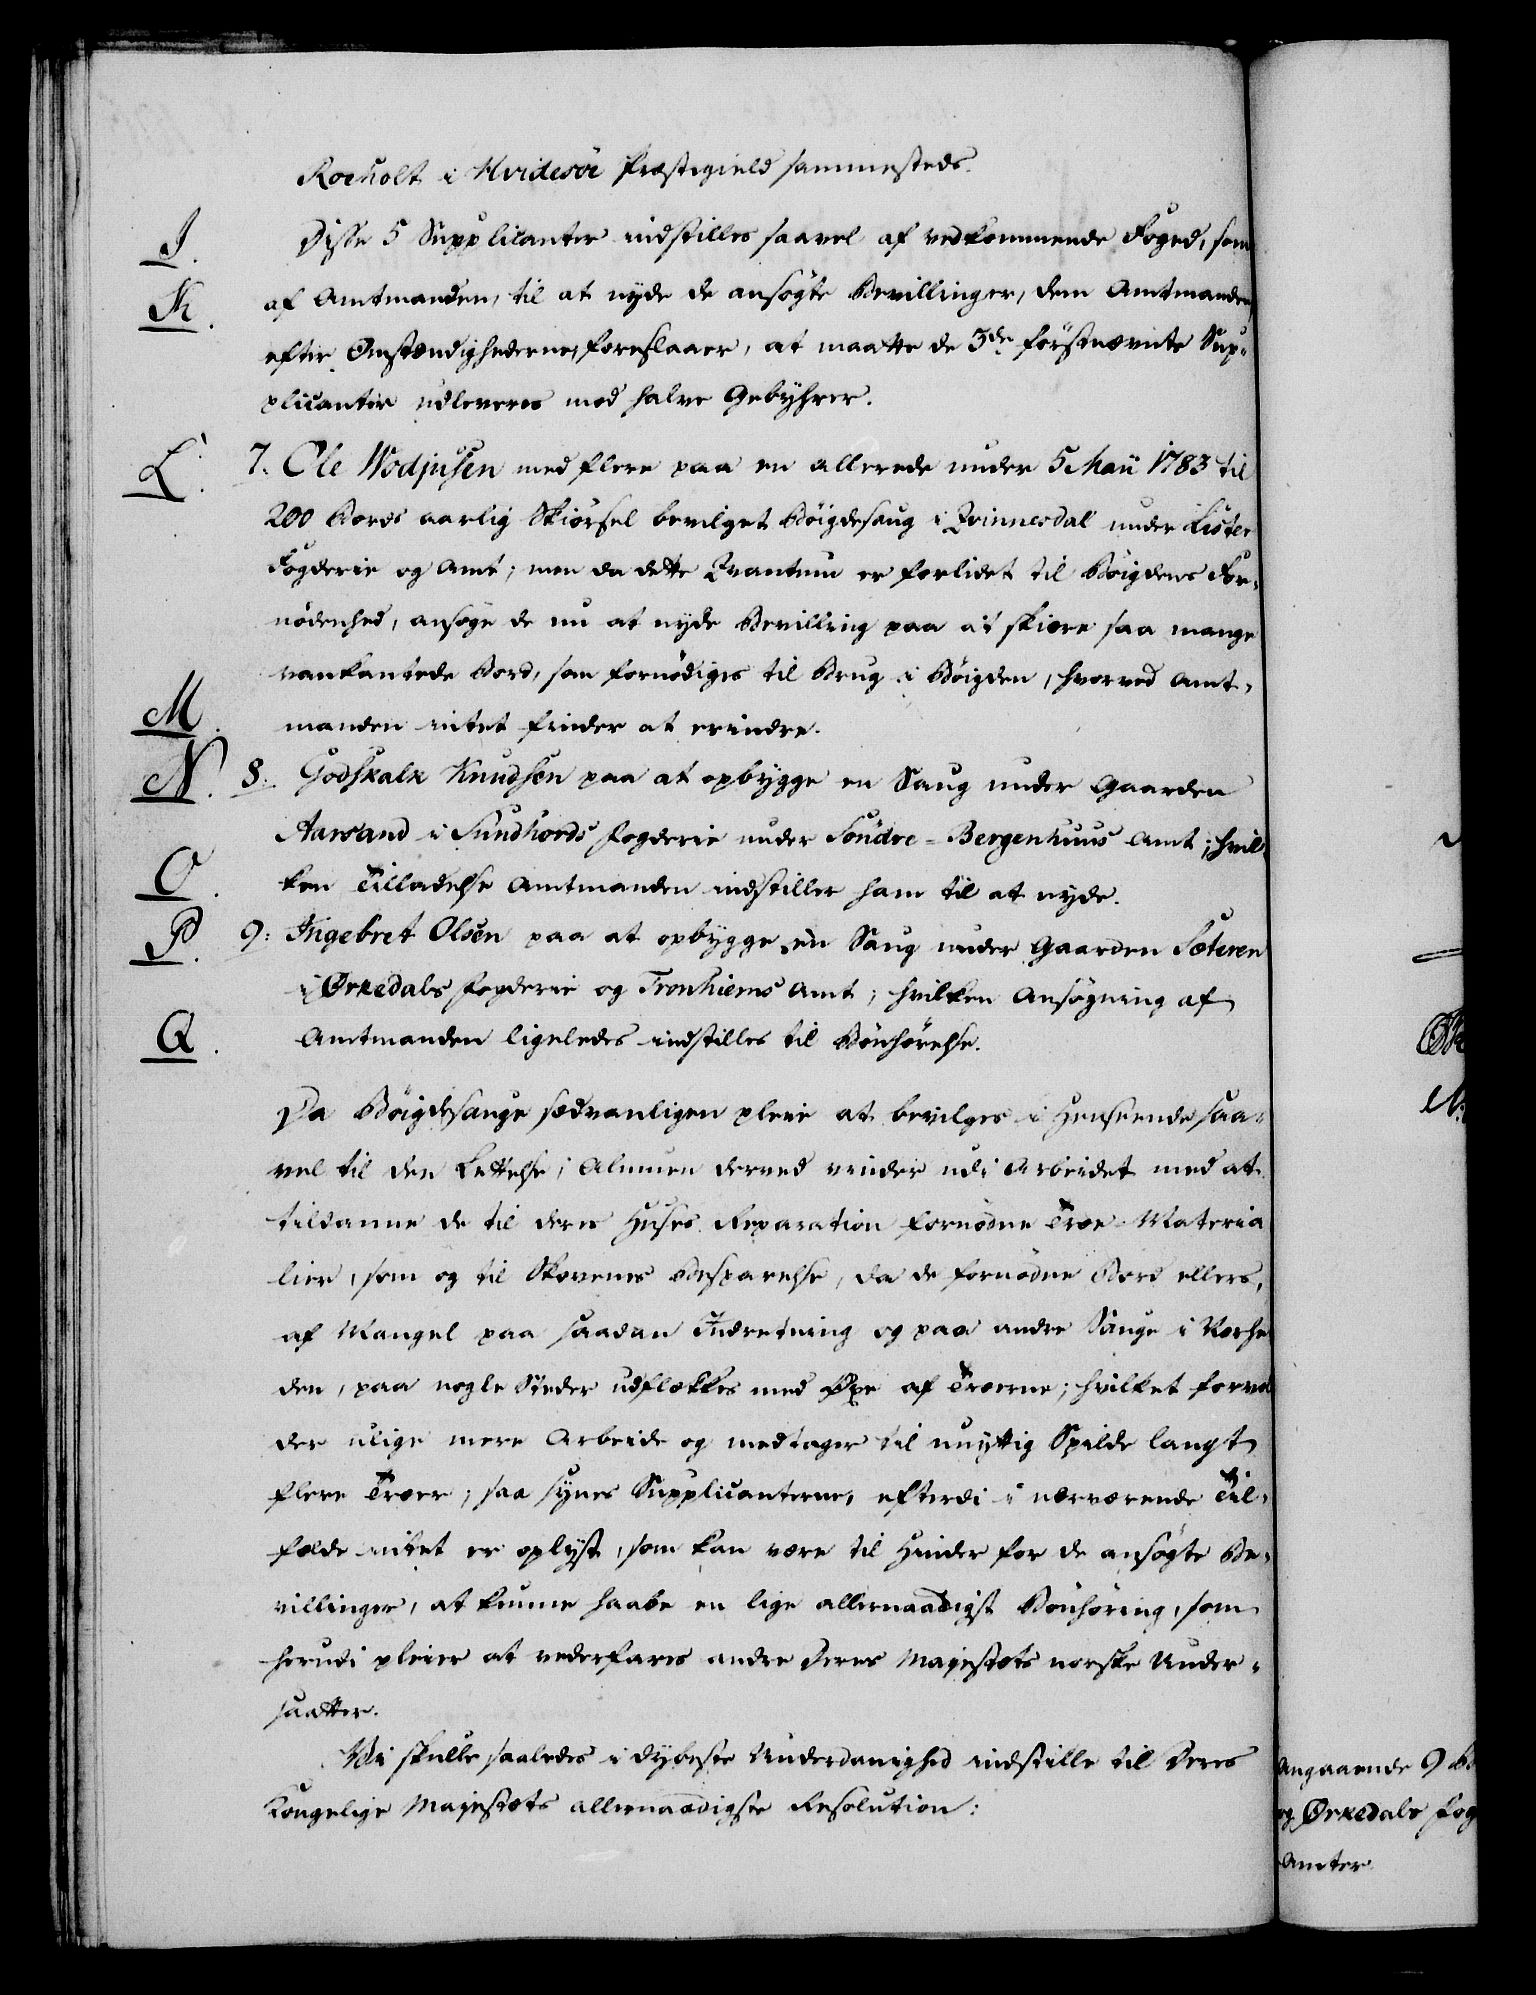 Roeholt i Hvidesöe Præstegield sammesteds.
I. Disse 5 Supplicanter indstilles saavel af vedkommende Foged, som
K. af Amtmanden, til at nyde de ansögte Bevillinger, dem Amtmanden,
efter Omstændighederne, foreslaaer, at maatte de 3de förstnævnte Sup-
plicanter udleveres mod halve Gebyhrer.
L. 7. Ole Wodjusen med flere paa en allerede under 5 Maii 1783 til
200 Bords aarlig Skiörsel bevilget Böigdesaug i Qvinnesdal under Lister
Fogderie og Amt; men da dette Qvantum er forlidet til Böigdens For-
nödenhed, ansöge de nu at nyde Bevilling paa at skiere saa mange
vankantede Bord, som fornödiges til Brug i Böigden, hvorved Amt-
M. manden intet finder at erindre.
N. 8. Godskalk Knudsen paa at opbygge en Saug under Gaarden
Aarsand i Sundhords Fogderie under Söndre-Bergenhuus Amt; hvil-
O. ken Tilladelse Amtmanden indstiller ham til at nyde.
P. 9: Ingebret Olsen paa at opbygge en Saug under Gaarden Sæteren
i Ørkedals Fogderie og Tronhiems Amt; hvilken Ansögning af
Q. Amtmanden ligeledes indstilles til Bönhörelse.
Da Böigdesauge sædvanligen pleie at bevilges i Henseende saa-
vel til den Lettelse, Almuen derved vinder udi Arbeidet med at
tildanne de til deres Huses Reparation fornödne Træe-Materia
lier, som og til Skovenes Besparelse, da de fornödne Bord ellers,
af Mangel paa saadan Indretning og paa andre Sauge i Nærhe
den, paa nogle Steder udflækkes med Øxe af Træerne; hvilket forvol
der ulige mere Arbeide og medtager til unyttig Spilde langt
flere Træer; saa synes Supplicanterne, efterdi i nærværende Til-
fælde intet er oplyst, som kan være til Hinder for de ansögte Be-
villinger, at kunne haabe en lige allernaadigst Bönhöring, som
herudi pleier at vederfares andre Deres Majestæts norske Under-
saatter.
Vi skulle saaledes i dybeste Underdanighed indstille til Deres
Kongelige Majestæts allernaadigste Resolution:
angaaende 9 Bö
og Ørkedals Fog
Amter